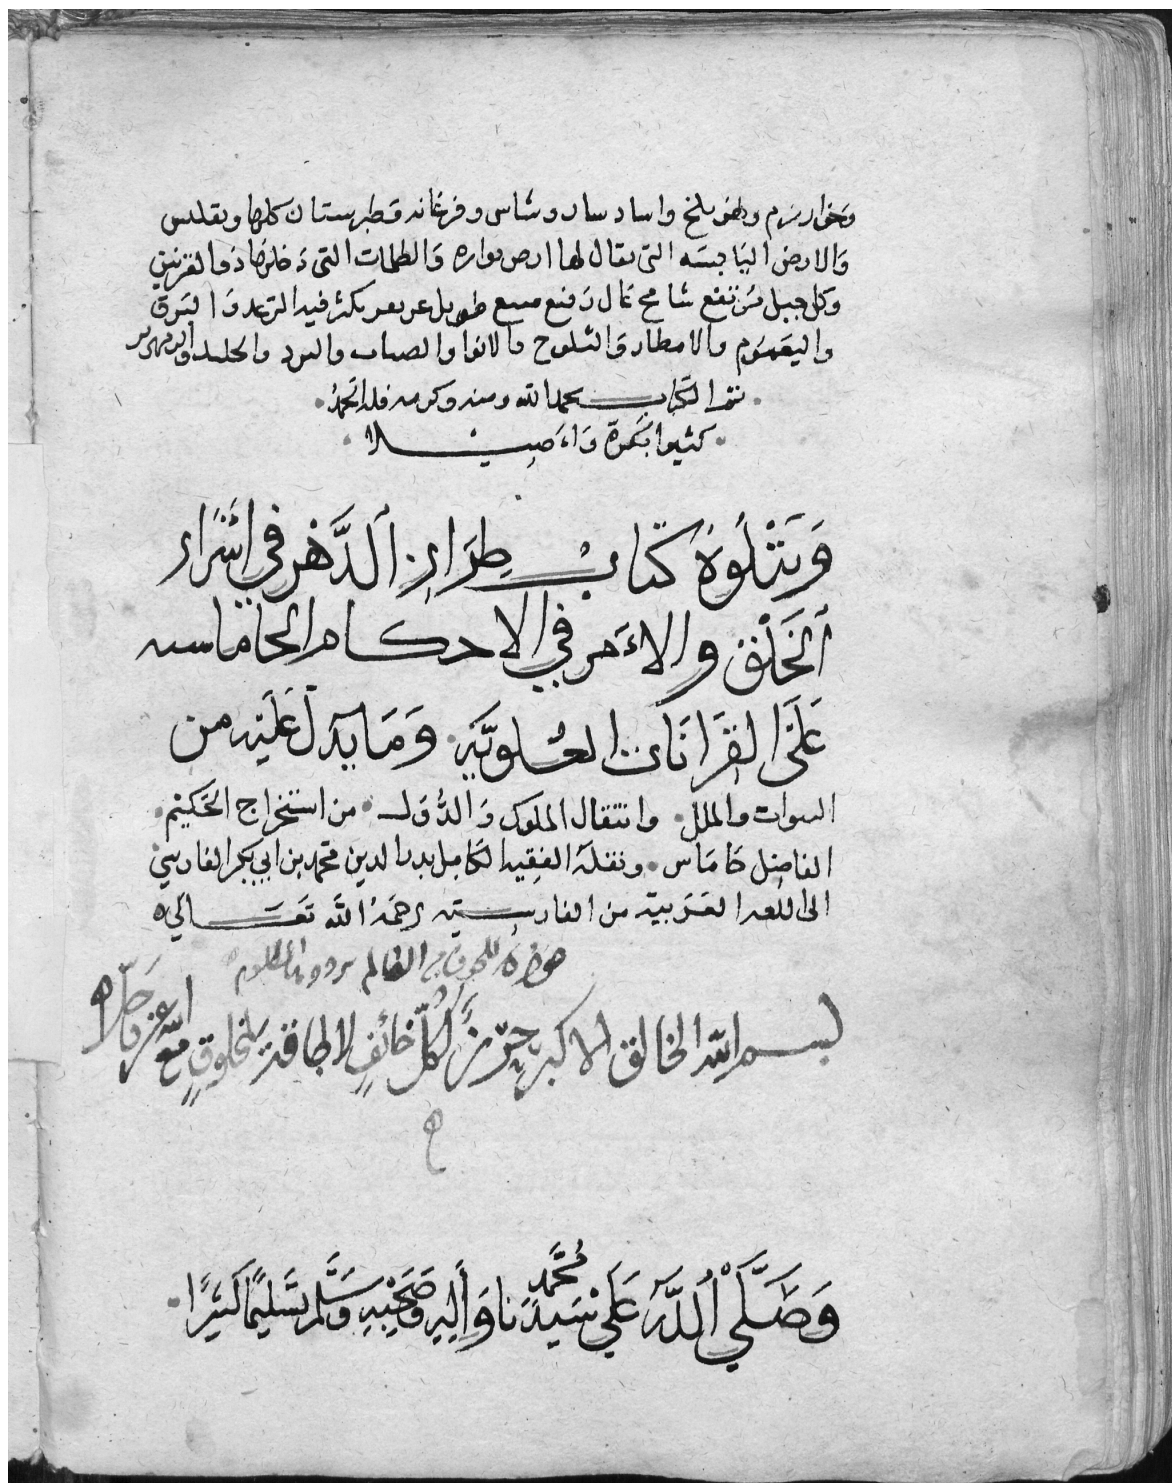 وخوارزم وبلخ وشاس وفرغانه وطبرستان كلها وتفليس
والارض اليابسه التى يقال لها ارض والظلمات التى دخلها ذو القرنين
وكل جبل مرتفع شامخ عال رفيع منيع طويل عريض يكثر فيه الرعد والبرق
والغيوم والامطار والثلوج والانوا والضباب والبرد والجليد والزمهرير
تم الكتاب بحمد الله ومنه وكرمه فله الحمد
كثيرا بكرة واءصيلا
ويتلوه كتاب طراز الدهر في اسرار
الخلق والاءمر في الاحكام الجاماسيه
على القرانات العلويه وما يدل عليه من
النبوات والملل وانتقال الملوك والدول من استخراج الحكيم
الفاضل جاماس ونقله الفقيه الكامل بدر الدين محمد بن ابي بكر الفارسي
الى اللغه العربيه من الفارسيه رحمه الله تعالى
من الظالم
بسم الله الخالق الاكبر حرز لكل خائف لا طاقة لمخلوق مع الله عز وجل
وصلي الله على سيدنا محمد واله وصحبه وسلم تسليما كثيرا